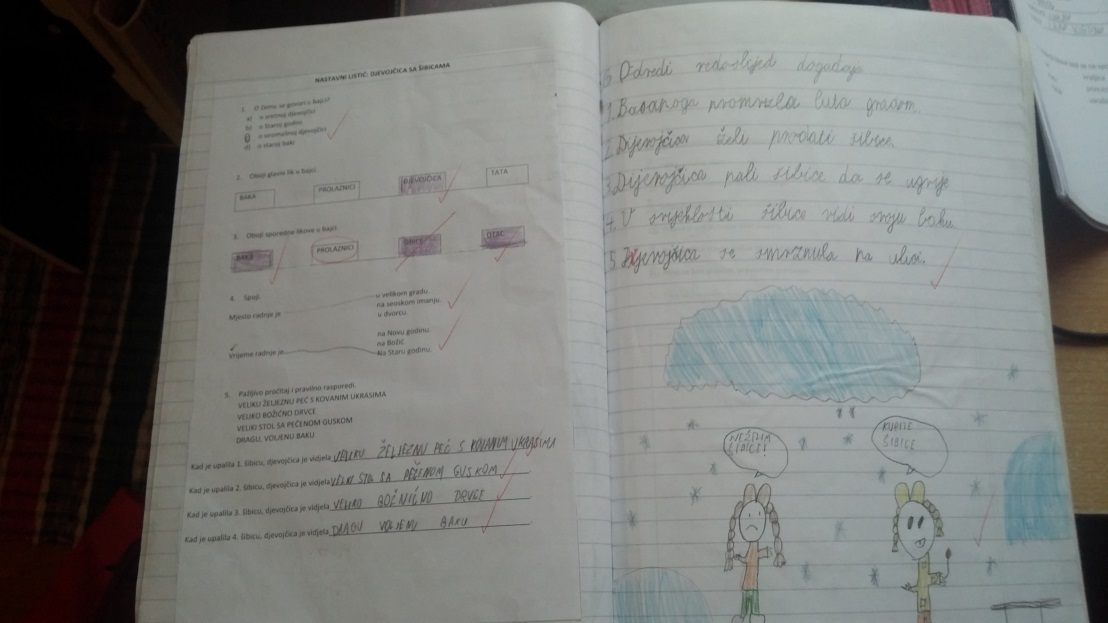 NASTAVNI LISTIĆ: DJEVOJČICA SA ŠIBICAMA
1. O čemu se govori u bajci?
a) o sretnoj djevojčici
b) o Staroj godini
c) o siromašnoj djevojčici
d) o staroj baki
2. Oboji glavni lik u bajci
BAKA PROLAZNICI DJEVOJČICA TATA
3. Oboji sporedne likove u bajci
BAKA PROLAZNICI OTAC
4. Spoji
u velikom gradu.
na seoskom imanju.
Mjesto radnje je u dvorcu.
na Novu godinu.
na Božić.
Vrijeme radnje je Na Staru godinu.
5. Pažljivo pročitaj i pravilno rasporedi.
VELIKU ŽELJEZNU PEĆ S KOVANIM UKRASIMA
VELIKO BOŽIĆNO DRVCE
VELIKI STOL SA PEČENOM GUSKOM
DRAGU, VOLJENU BAKU
Kad je upalila 1. šibicu, djevojčica je vidjela VELIKU ŽELJEZNU PEĆ S KOVANIM UKRASIMA
Kad je upalila 2. šibicu, djevojčica je vidjela VELIKI STOL SA PEČENOM GUSKOM
Kad je upalila 3. šibicu, djevojčica je vidjela VELIKO BOŽIĆNO DRVCE
Kad je upalila 4. šibicu, djevojčica je vidjela DRAGU VOLJENU BAKU
6. Odredi redoslijed događaja
1. Bosonoga promrzla luta gradom.
2. Djevojčica želi prodati šibice.
3. Djevojčica pali šibice da se ugrije
4. U svjetlosti šibice vidi svoju baku.
5. Djevojčica se smrznula na ulici.
NE ŽELIM
ŠIBICE!
KUPITE
ŠIBICE